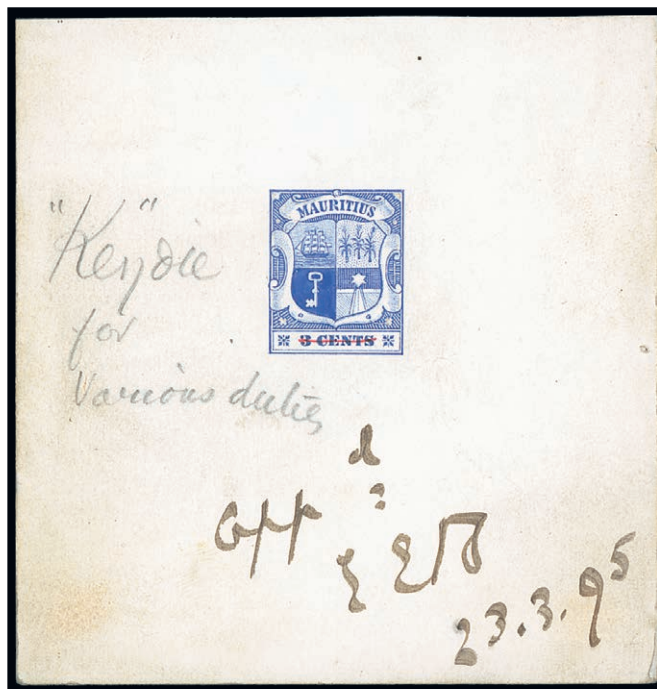 MAURITIUS
3 CENTS
"Key" die
for
various duties
App
23.3.95